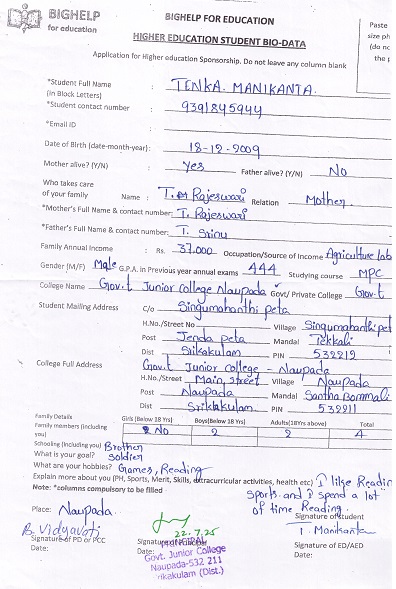 BIGHELP
for education
BIGHELP FOR EDUCATION
HIGHER EDUCATION STUDENT BIO-DATA
Paste
size ph
(do no
the p
Application for Higher education Sponsorship. Do not leave any column blank
*Student Full Name : TENKA. MANIKANTA.
(in Block Letters)
*Student contact number : 9391845944
*Email ID :
Date of Birth (date-month-year): 18-12-2009
Mother alive? (Y/N) Yes Father alive? (Y/N) No
Who takes care
of your family Name : T. Rajeswari Relation Mother.
*Mother's Full Name & contact number: T. Rajeswari
*Father's Full Name & contact number: T. Srinu
Family Annual Income : Rs. 37.000 Occupation/Source of Income Agriculture lab
Gender (M/F) Male G.P.A. in Previous year annual exams 444 Studying course MPC
College Name Gov.t Junior College Naupada Govt/ Private College Gov.t
Student Mailing Address C/o Singumahanthi peta
H.No./Street No Village Singumahanthi pet
Post Jenda peta Mandal Tekkali
Dist Srikakulam PIN 532212
College Full Address Gov.t Junior college - Naupada
H.No./Street Main street Village Naupada
Post Naupada Mandal Santha Bommali
Dist Sriklakulam PIN 532211
Family Details Girls (Below 18 Yrs) Boys(Below 18 Yrs) Adults(18Yrs above) Total
Family members (including you) No 2 2 4
Schooling (Including you) Brother
What is your goal? Soldier
What are your hobbies? Games, Reading
Explain more about you (PH, Sports, Merit, Skills, extracurricular activities, health etc) I like Readin
Note: *columns compulsory to be filled sports and i spend a lot
of time Reading.
Place: Naupada
B. Vidyavati
22.7.25
Signature of student
T. Manikanta
Signature of PD or PCC
Date:
PRINCIPAL
Govt. Junior College
Naupada-532 211
rikakulam (Dist.)
Date:
Signature of ED/AED
Date: